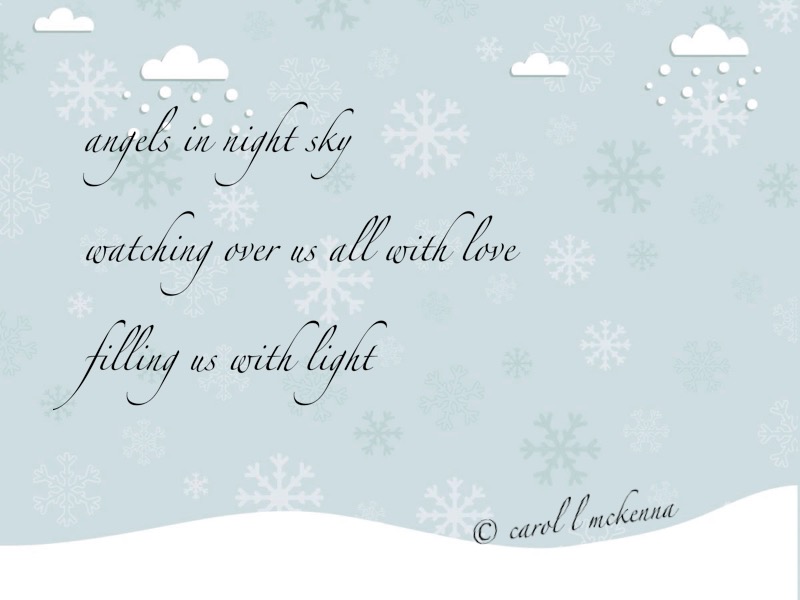 angels in night sky
watching over us all with love
filling us with light
© carol l mckenna